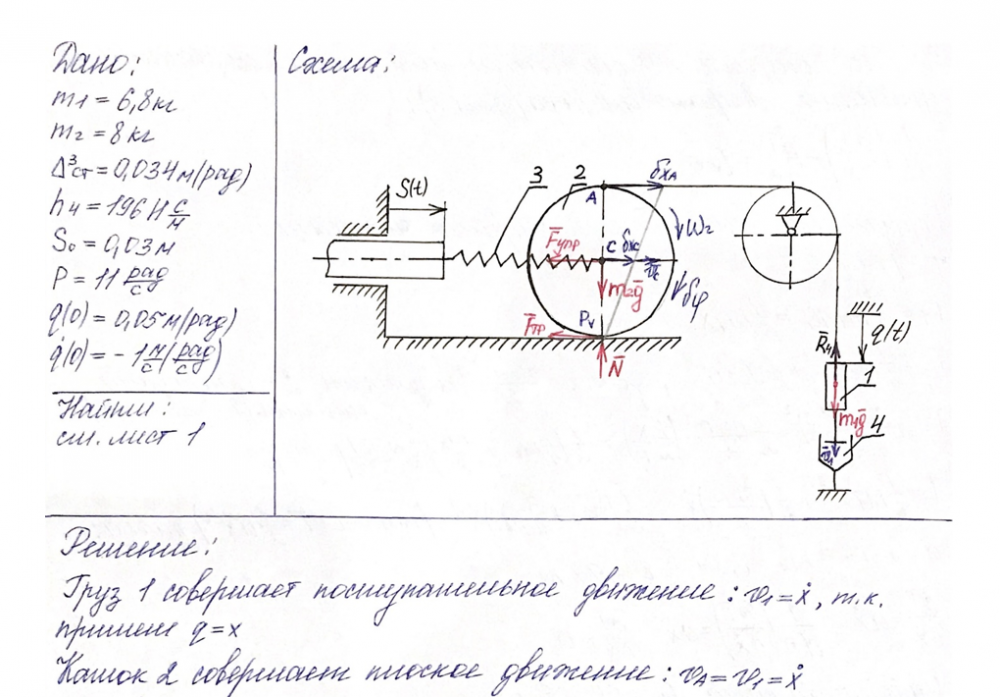 Дано:
m1 = 6,8кг
m2 = 8кг
Δ³ст = 0,034м/рад)
h4 = 196 Н с/м
S0 = 0,03м
P = 11 рад/с
q(0) = 0,05м/рад)
q̇(0) = - 1 м/с (рад/с)
Найти:
см. лист 1
Схема:
S(t)
3
2
A
δxA
ω2
F̄упр
C
δxc
v̄c
m2ḡ
δφ
Pv
F̄тр
N̄
q(t)
R̄4
1
m1ḡ
v̄1
4
Решение:
Груз 1 совершает поступательное движение: v1 = ẋ, т.к.
примем q = x
Каток 2 совершает плоское движение: vA = v1 = ẋ